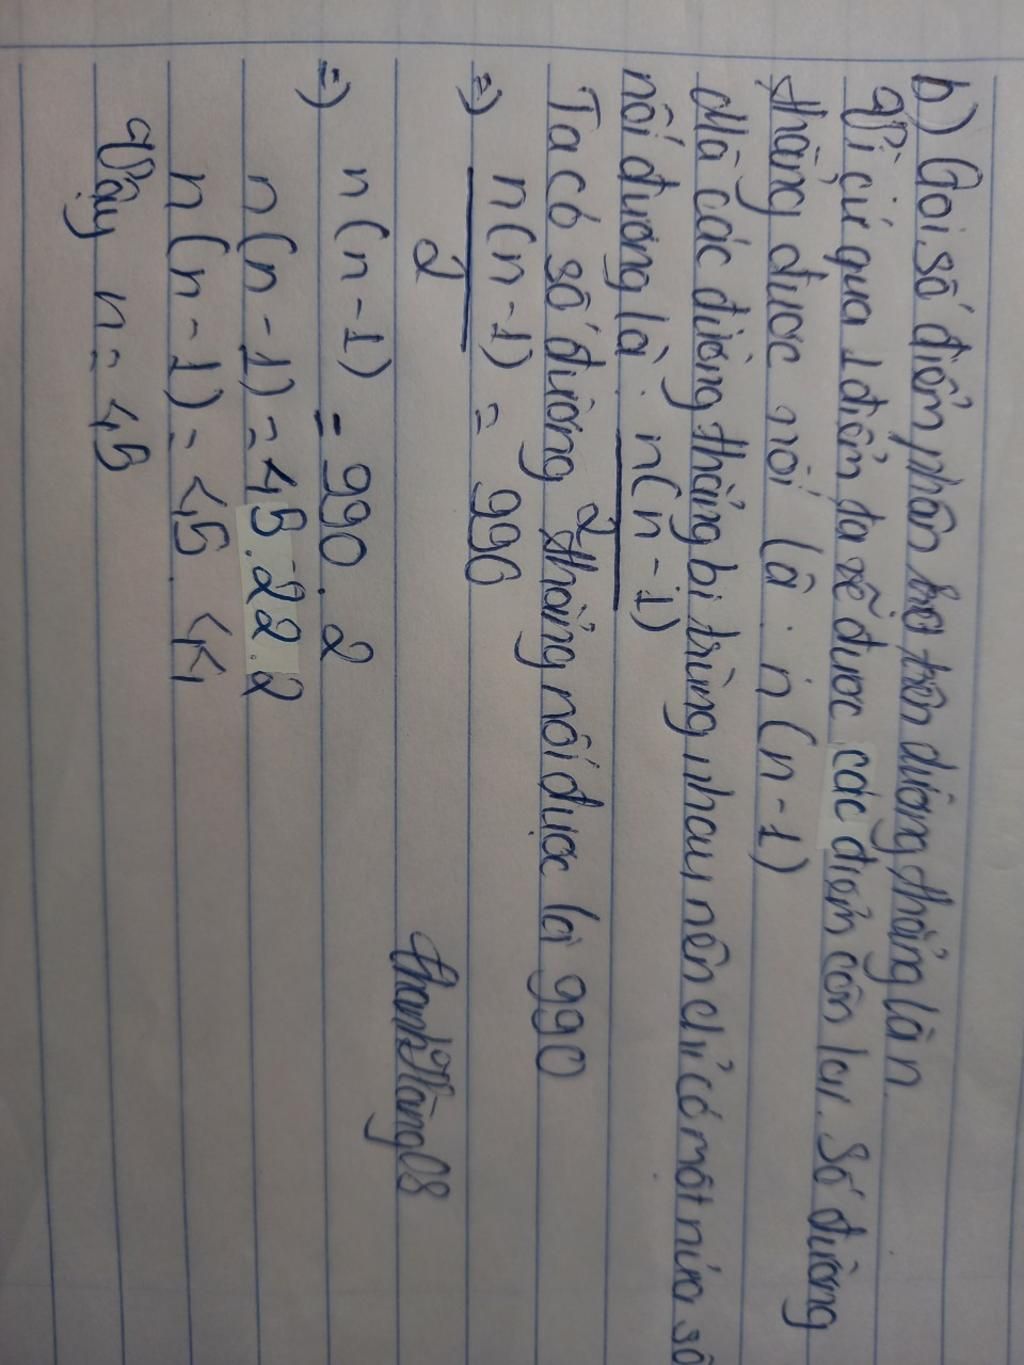 b) Gọi số điểm phân trên đường thẳng là n
Vì cứ qua 1 điểm ta vẽ được các điểm còn lại. Số đường
thẳng được nối là: n(n-1)
Mà các đường thẳng bị trùng nhau nên chỉ có một nửa số
nối đường là: n(n-1)/2
Ta có số đường thẳng nối được là 990
=> n(n-1)/2 = 990
ThanhHằng08
=> n(n-1) = 990.2
n(n-1) = 45.22.2
n(n-1) = 45.44
Vậy n = 45